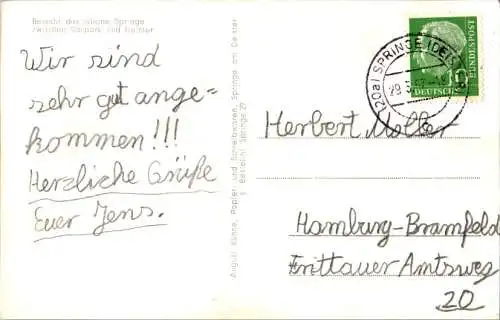 Besucht das schöne Springe
zwischen Saupark und Deister
Wir sind
sehr gut ange=
kommen!!!
Herzliche Grüße
Euer Jens.
August Kühne, Papier- und Schreibwaren, Springe am Deister
Bestellnr. Springe 29
(20a) SPRINGE (DEIST
29.3.
10
DEUTSCHE
BUNDESPOST
Herbert Moller
Hamburg-Bramfeld
Erittauer Amtsweg
20